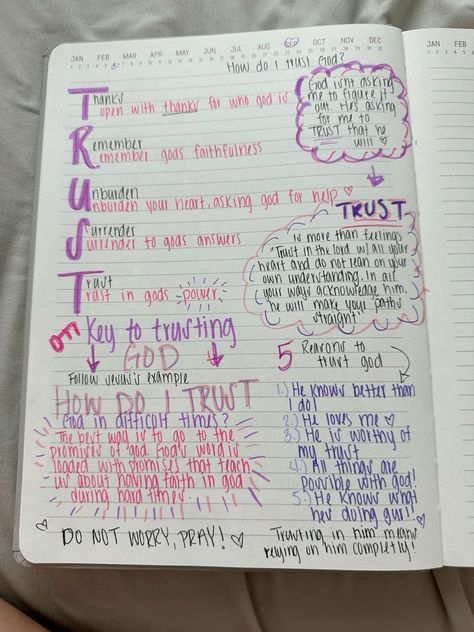 JAN FEB MAR APR MAY JUN JUL AUG SEP OCT NOV DEC
JAN FEB
How do I trust God?
Thanks
open with thanks for who god is
Remember
Remember gods faithfulness
Unburden
Unburden your heart, asking god for help ♡
Surrender
Surrender to gods answers
Trust
Trust in gods power
God isn't asking
me to figure it
out. He's asking
for me to
TRUST that he
will ♡
TRUST
is more than feelings
"Trust in the lord w/ all your
heart and do not lean on your
own understanding. In all
your ways acknowledge him,
he will make your paths
straight"
Key to trusting
GOD
Follow Jesus's example
HOW DO I TRUST
God in difficult times?
The best way is to go to the
promises of god. God's word is
loaded with promises that teach
us about having faith in god
during hard times.
5 Reasons to
trust god
1.) He knows better than
I do!
2.) He loves me ♡
3.) He is worthy of
my trust
4.) All things are
possible with god!
5.) He knows what
hes doing gurl! ♡
♡ DO NOT WORRY, PRAY! ♡
Trusting in him means
relying on him completly!